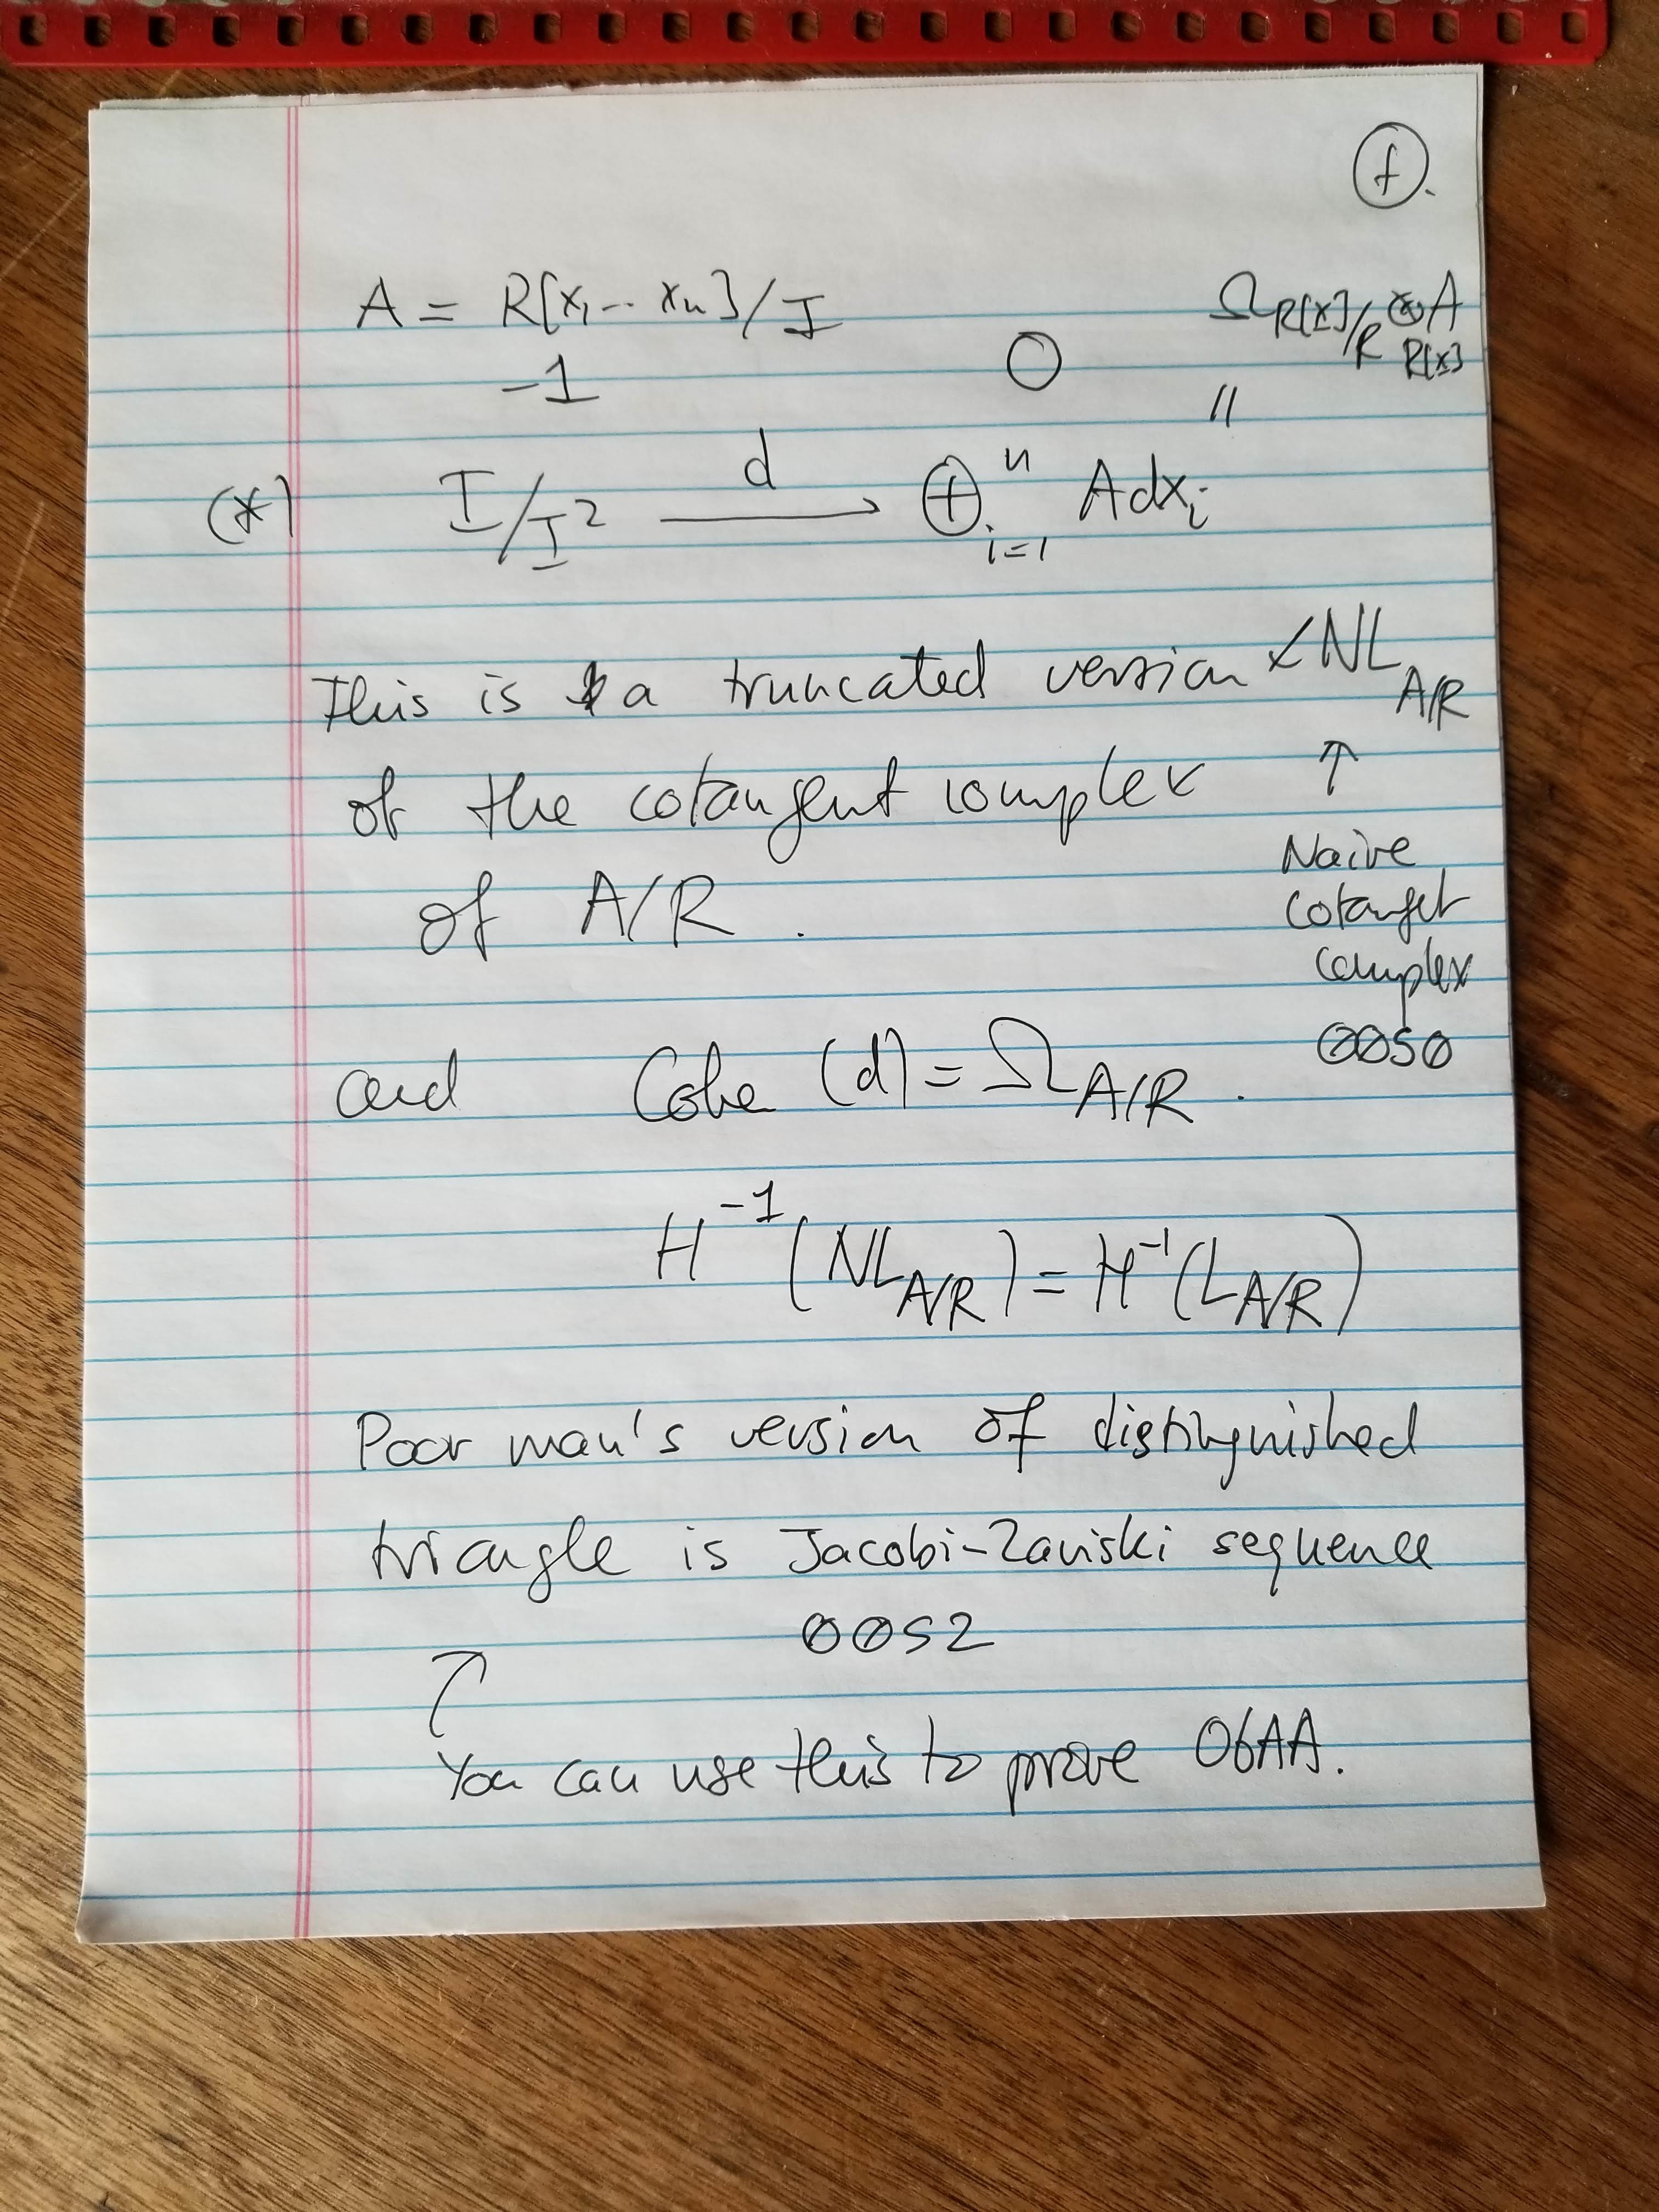 f.
A = R[x₁ -- xₙ]/I
-1 0 Ω_{R[x]/R} ⊗_{R[x]} A
=
(*) I/I² --d--> ⊕_{i=1}^{n} A dx_i
This is a truncated version ↙ NL_{A/R}
of the cotangent complex ↑
of A/R.
Naive
cotanget
complex
00S0
and Coker (d) = Ω_{A/R}.
H^{-1}(NL_{A/R}) = H^{-1}(L_{A/R})
Poor man's version of distinguished
triangle is Jacobi-Zariski sequence
00S2
↗
You can use this to prove 06AA.